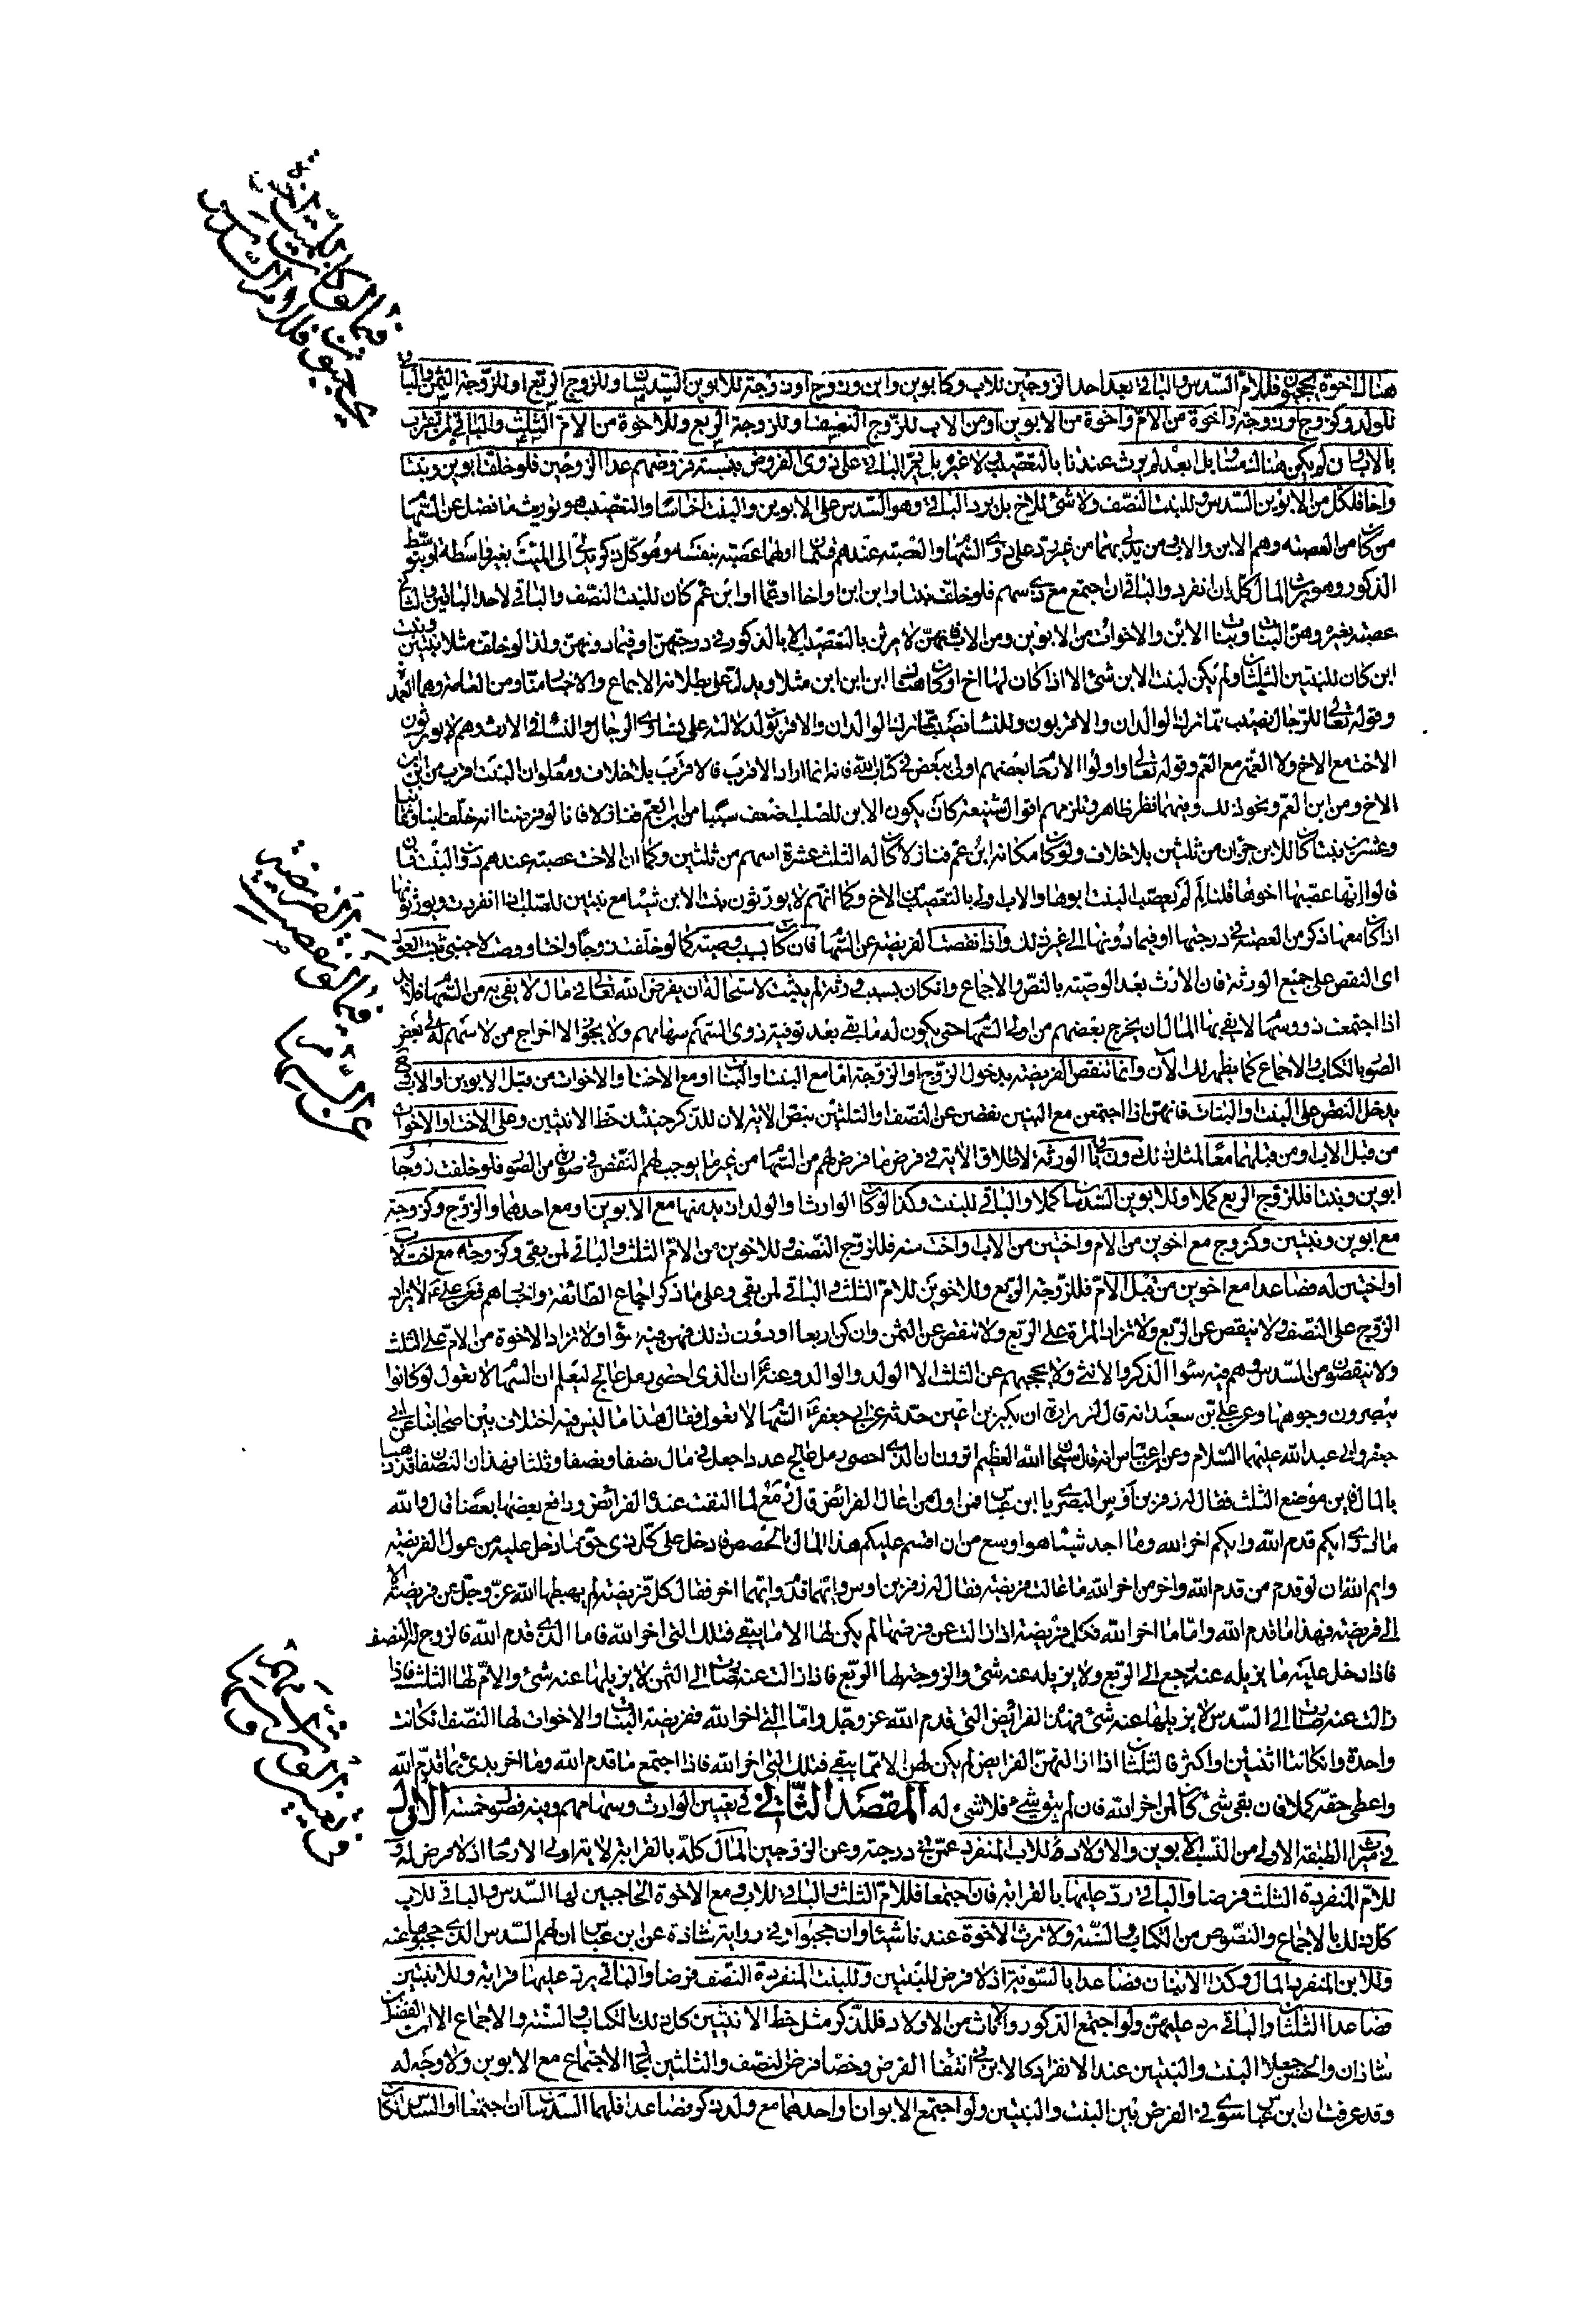 هناك اخوة يحجبون فللام السّدس والباقى بعد احد الزوجين للاب وكابوين وابن وزوج او زوجة للابوين السّدسان وللزوج الربع او للزوجة الثمن والباقى
للولد وكزوج او زوجة واخوة من الامّ واخوة من الابوين او من الاب للزّوج النصف او للزوجة الربع وللاخوة من الامّ الثلث والباقى لمن تقرب
بالاب وان لم يكن هناك مساو بل ابعد لم يرث عندنا بالتعصيب لا غير بل يردّ الباقى على ذوى الفروض بنسبة فروضهم عدا الزوجين فلو خلف ابوين وبنتا
واخا فلكل من الابوين السّدس وللبنت النّصف ولا شئ للاخ بل يرد الباقى وهو السّدس على الابوين والبنت اخماسا والتعصيب هو توريث ما فضل عن السّهام
من كان من العصبة وهم الابن والاب ومن يدلى بهما من غير ردّ على ذوى السّهام والعصبة عندهم قسمان اولهما عصبة بنفسه وهو كل ذكر يدلى الى الميّت بغير واسطة او بتوسّط
الذكور وهو يرث المال كله ان انفرد والباقى ان اجتمع مع ذى سهم فلو خلف بنتا وابن ابن او اخا او عمّا او ابن عم كان للبنت النّصف والباقى لاحد الباقين والثانى
عصبة بغيره وهنّ البنات وبنات الابن والاخوات من الابوين ومن الاب فانهنّ لا يرثن بالتعصيب الا بالذكور فى درجتهن او فيما دونهن ولذا لو خلف مثلا بنتين وبنت
ابن كان للبنتين الثلثان ولم يكن لبنت الابن شئ الا اذا كان لها اخ او كان هناك ابن ابن ابن مثلا ويدلّ على بطلانه الاجماع والاخبار منّا ومن العامة وهما العمدة
وقوله تعالى للرّجال نصيب ممّا ترك الوالدان والاقربون وللنساء نصيب ممّا ترك الوالدان والاقربون لدلالته على تساوى الرجال والنساء فى الارث وهم لا يورثون
الاخت مع الاخ ولا العمّة مع العم وقوله تعالى واولوا الارحام بعضهم اولى ببعض فى كتاب الله فانه انما اراد الاقرب فالاقرب بلا خلاف ومعلوم ان البنت اقرب من ابن
الاخ ومن ابن العمّ ونحو ذلك وفيهما نظر ظاهر وتلزمهم اقوال شنيعة كان يكون الابن للصّلب اضعف سببا من ابن العمّ فنازلا فانا لو فرضنا انه خلّف ابنا وثمانيا
وعشرين بنتا كان للابن جزءان من ثلثين بلا خلاف ولو كان مكانه ابن عم فنازلا كان له الثلث عشرة اسهم من ثلثين وكما ان الاخت عصبة عندهم دون البنت فان
قالوا انّها عصبها اخوها قلنا لم لم يعصب البنت ابوها والاب اولى بالتعصيب من الاخ وكما انهم لا يورثون بنت الابن شيئا مع بنتين للصّلب اذا انفردت ويورثونها
اذا كان معها ذكر من العصبة فى درجتها او فيما دونها الى غير ذلك واذا نقصت الفريضة عن السّهام فان كان بسبب وصية كما لو خلفت زوجا واختا ووصّت لاجنبى ثبت العول
اى النقص على جميع الورثة فان الارث بعد الوصية بالنصّ والاجماع وان كان بسبب ورثة لم يثبت لاستحالة ان يفرض الله تعالى فى مال لا يفى به من السّهام فلا بدّ
اذا اجتمعت ذوو سهام لا يفى بها المال ان يخرج بعضهم من اولى السّهام حتى يكون له ما بقى بعد توفية ذوى السّهم سهامهم ولا يجوز الا اخراج من لا سهم له فى بعض
الصّور بالكتاب والاجماع كما يظهر لك الآن وانما تنقص الفريضة بدخول الزّوج او الزّوجة امّا مع البنت او البنات او مع الاخت او الاخوات من قبل الابوين او الاب
يدخل النقص على البنت او البنات فانهنّ اذا اجتمعن مع البنين نقصن عن النّصف او الثلثين بنصّ الاية لان للذّكر حينئذ حظّ الانثيين وعلى الاخت او الاخوات
من قبل الاب او من قبلهما معا لمثل ذلك دون باقى الورثة لاطلاق الاية فى فرض ما فرض لهم من السّهام من غير ما يوجب لهم النّقص فى صورة من الصّور فلو خلفت زوجا و
ابوين وبنتا فللزوج الربع كملا وللابوين السّدسان كملا والباقى للبنت وكذا لو كان الوارث او الولد ازيد منها مع الابوين او مع احدهما والزّوج وكزوجة
مع ابوين وبنتين وكزوج مع اخوين من الام واختين من الاب او اخت منه فللزوج النّصف وللاخوين من الامّ الثلث والباقى لمن بقى وكزوجة مع اخت لاب
او اختين له فصاعدا مع اخوين من قبل الامّ فللزّوجة الربع وللاخوين للامّ الثلث والباقى لمن بقى وعلى ما ذكر اجماع الطّائفة واخبارهم فعن على ع لا يزاد
الزّوج على النّصف ولا ينقص عن الرّبع ولا تزاد المرأة على الرّبع ولا تنقص عن الثّمن وان كنّ اربعا او دون ذلك فهنّ فيه سواء ولا تزاد الاخوة من الامّ على الثلث
ولا ينقصون من السّدس وهم فيه سواء الذكر والانثى ولا يحجبهم عن الثلث الا الولد والوالد وعنه ع ان الذى احصى رمل عالج ليعلم ان السّهام لا تعول لو كانوا
يبصرون وجوهها وعن على بن سعيد انه قال لزرارة ان بكير بن اعين حدثه عن ابى جعفر ع السّهام لا تعول فقال هذا ما ليس فيه اختلاف بين اصحابنا عن ابى
جعفر وابى عبد الله عليهما السّلام وعن ابن عباس انه قال سبحان الله العظيم اترون ان الذى احصى رمل عالج عددا جعل فى مال نصفا ونصفا وثلثا فهذان النصفان قد ذهبا
بالمال فاين موضع الثلث فقال له زفر بن اوس البصرى يا ابن عباس فمن اول من اعال الفرائض قال عمر لما التفت عنده الفرائض ودافع بعضها بعضا قال والله
ما ادرى ايكم قدم الله وايكم اخر الله وما اجد شيئا هو اوسع من ان اقسم عليكم هذا المال بالحصص فادخل على كلّ ذى حق ما دخل عليه من عول الفريضة
وايم الله ان لو قدم من قدم الله واخر من اخر الله ما عالت فريضة فقال له زفر بن اوس وايّهما قدّم وايّهما اخر فقال كل فريضة لم يهبطها الله عزّ وجلّ عن فريضة الّا
الى فريضة فهذا ما قدم الله وامّا ما اخر الله فكل فريضة اذا زالت عن فرضها لم يكن لها الا ما يبقى فتلك التى اخر الله فاما الذى قدم الله فالزوج له النصف
فاذا دخل عليه ما يزيله عنه رجع الى الربع ولا يزيله عنه شئ والزوجة لها الربع فاذا زالت عنه صارت الى الثمن لا يزيلها عنه شئ والامّ لها الثلث فاذا
زالت عنه صارت الى السّدس لا يزيلها عنه شئ فهذه الفرائض التى قدم الله عز وجل وامّا التى اخر الله ففريضة البنات والاخوات لها النّصف ان كانت
واحدة وان كانتا اثنتين او اكثر فالثلثان اذا ازالتهن الفرايض لم يكن لهن الا ما يبقى فتلك التى اخر الله فاذا اجتمع ما قدم الله وما اخر بدئ بما قدّم الله
واعطى حقه كملا فان بقى شئ كان لمن اخر الله فان لم يبق شئ فلا شئ له المقصد الثّانى فى تعيين الوارث وسهامهم وفيه فصول خمسة الاول
فى ميراث الطبقة الاولى من النّسب الابوين والاولاد للاب المنفرد عمّن فى درجته وعن الزوجين المال كلّه بالقرابة لاية اولى الارحام اذ لا فرض له و
للامّ المنفردة الثلث فرضا والباقى ردّ عليها بالقرابة فان اجتمعا فللامّ الثلث والباقى للاب ومع الاخوة الحاجبين لها السّدس والباقى للاب
كل ذلك بالاجماع والنّصوص من الكتاب والسّنة ولا ترث الاخوة عندنا شيئا وان حجبوا وفى رواية شاذة عن ابن عباس ان لهم السّدس الذى حجبوها عنه
وللابن المنفرد المال وكذا الابنان فصاعدا بالسّوية اذ لا فرض للبنين وللبنت المنفردة النّصف فرضا والباقى يرد عليها قرابة وللاثنتين
فصاعدا الثلثان والباقى رد عليهن ولو اجتمع الذكور والاناث من الاولاد فللذّكر مثل حظ الانثيين كل ذلك بالكتاب والسنّة والاجماع الا ان الفضل بن
شاذان والحسن جعلا البنت والبنتين عند الانفراد كالابن فى انتفاء الفرض وخصّا فرض النّصف والثلثين بحال الاجتماع مع الابوين ولا وجه له
وقد عرفت ان ابن عباس سوّى فى الفرض بين البنت والبنتين ولو اجتمع الابوان او احدهما مع ولد ذكر فصاعدا فلهما السّدسان ان اجتمعا او السّدس ان كان
فيما اذا نقصت الفريضة
عن السّهام